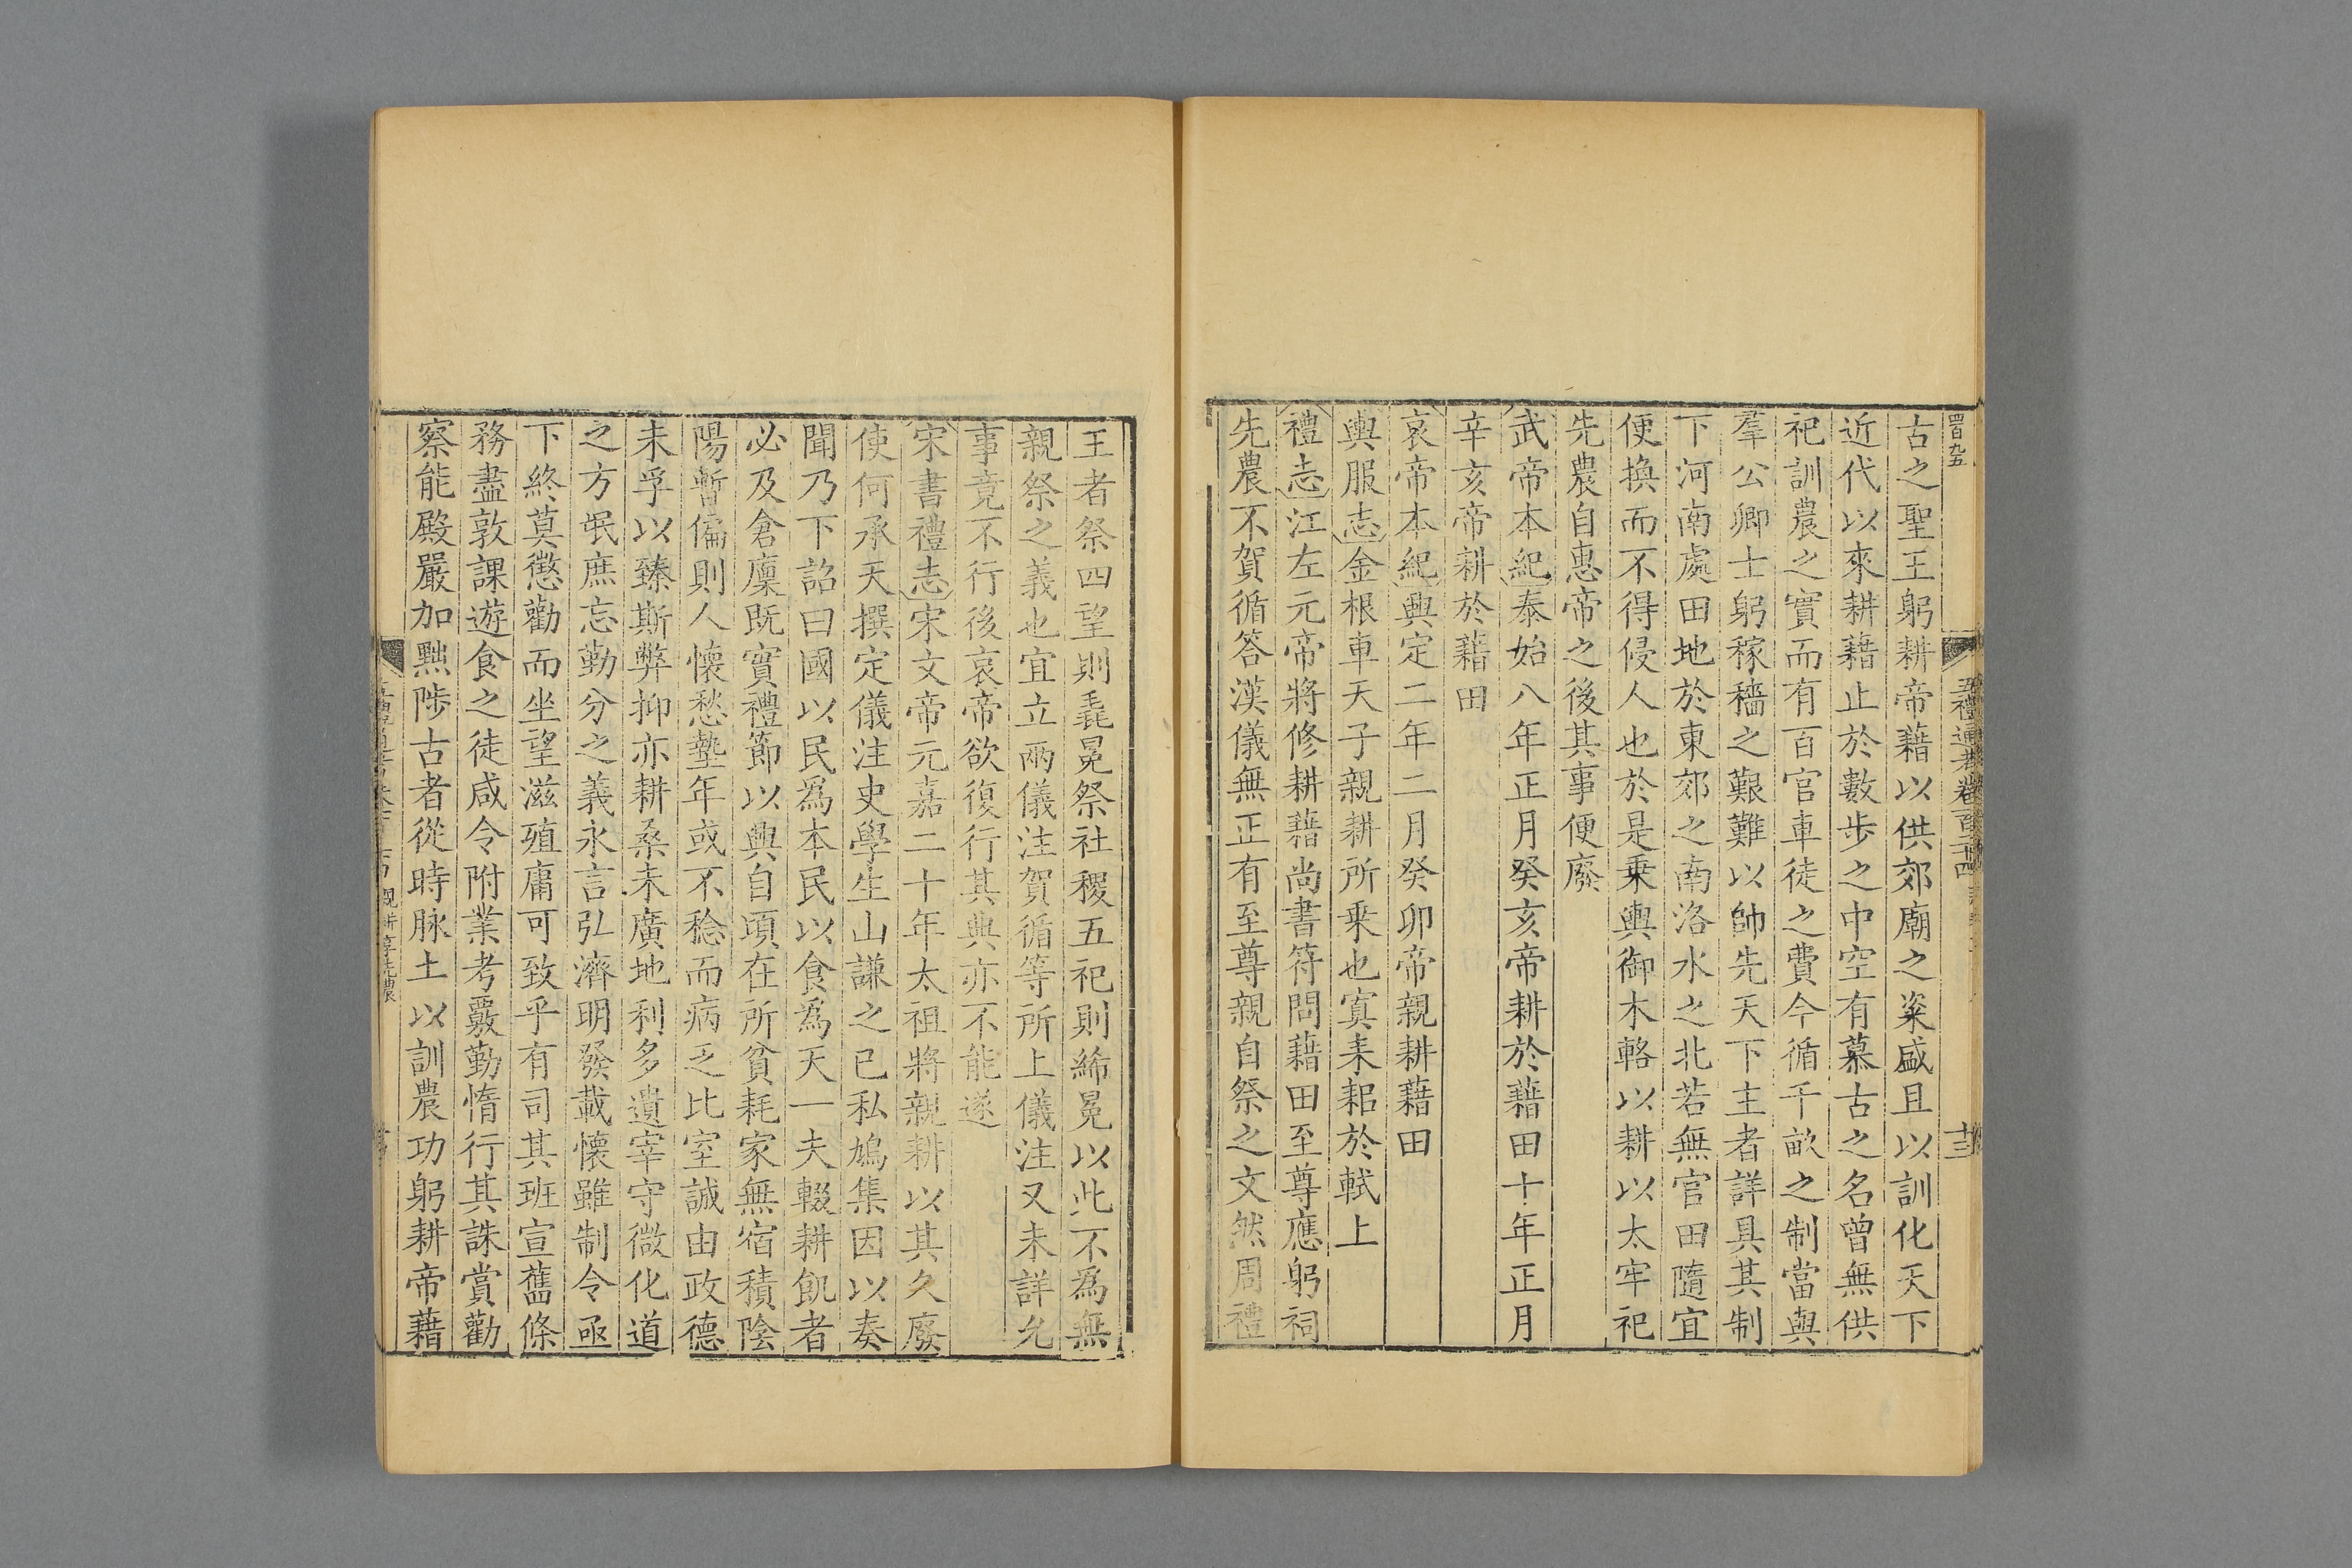 四百九五
五禮通考卷一百二十四
十三
古之聖王躬耕帝藉以供郊廟之粢盛且以訓化天下
近代以來耕藉止於數步之中空有慕古之名曾無供
祀訓農之實而有百官車徒之費今循千畝之制當與
羣公卿士躬稼穡之艱難以帥先天下主者詳具其制
下河南處田地於東郊之南洛水之北若無官田隨宜
便換而不得侵人也於是乗輿御木輅以耕以太牢祀
先農自惠帝之後其事便廢
武帝本紀泰始八年正月癸亥帝耕於藉田十年正月
辛亥帝耕於藉田
哀帝本紀興定二年二月癸卯帝親耕藉田
輿服志金根車天子親耕所乗也寘耒耜於軾上
禮志江左元帝將修耕藉尚書符問藉田至尊應躬祠
先農不賀循答漢儀無正有至尊親自祭之文然周禮
王者祭四望則毳冕祭社稷五祀則絺冕以此不爲無
親祭之義也宜立兩儀注賀循等所上儀注又未詳允
事竟不行後哀帝欲復行其典亦不能遂
宋書禮志宋文帝元嘉二十年太祖將親耕以其久廢
使何承天撰定儀注史學生山謙之已私鳩集因以奏
聞乃下詔曰國以民爲本民以食爲天一夫輟耕飢者
必及倉廩既實禮節以興自頃在所貧耗家無宿積陰
陽暫偏則人懷愁墊年或不稔而病乏比室誠由政德
未孚以臻斯弊抑亦耕桑未廣地利多遺宰守微化道
之方氓庶忘勤分之義永言弘濟明發載懷雖制令亟
下終莫懲勸而坐望滋殖庸可致乎有司其班宣舊條
務盡敦課遊食之徒咸令附業考覈勤惰行其誅賞勸
察能殿嚴加黜陟古者從時脉土以訓農功躬耕帝藉
親耕享先農